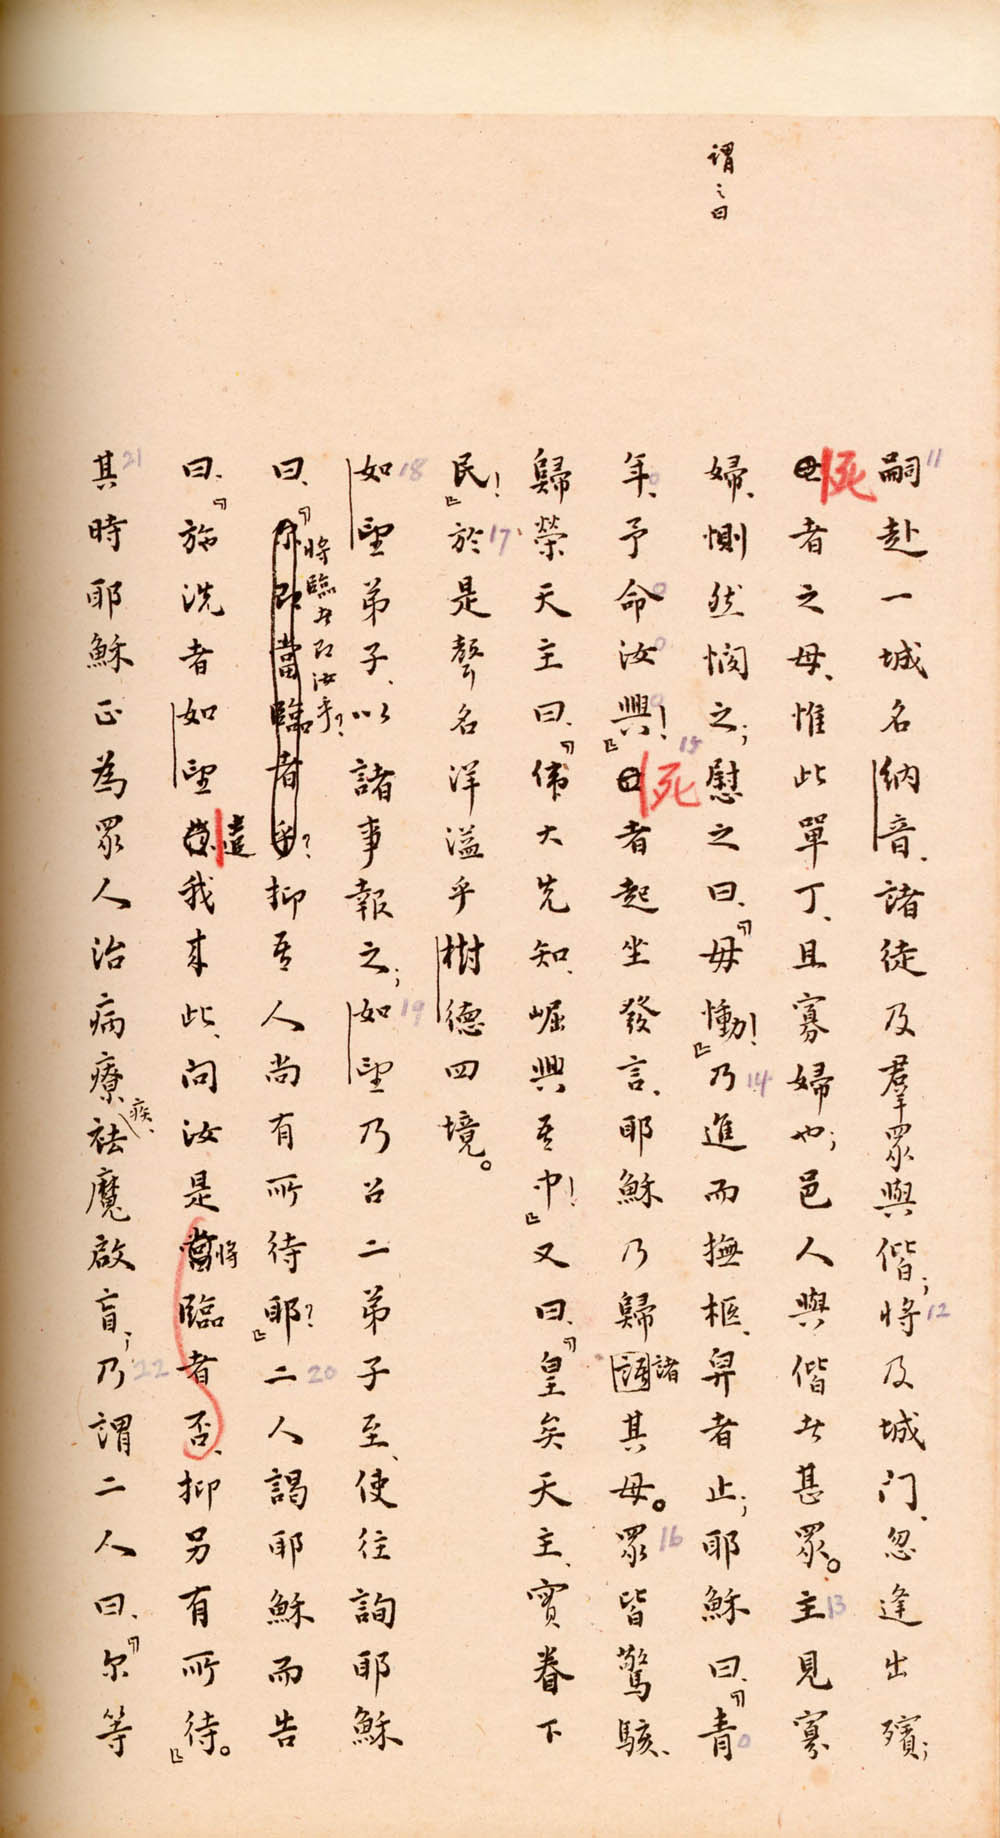 謂之曰
11 嗣赴一城名納音、諸徒及羣眾與偕；12 將及城門、忽逢出殯；
死者之母、惟此單丁、且寡婦也；邑人與偕者甚眾。13 主見寡
婦、惻然憫之；慰之曰、『毋慟！』14 乃進而撫柩、舁者止；耶穌曰、『青
年、予命汝興！』15 死者起坐發言、耶穌乃歸諸其母。16 眾皆驚駭、
歸榮天主曰、『偉大先知、崛興吾中！』又曰、『皇矣天主、實眷下
民！』17 於是聲名洋溢乎樹德四境。
18 如望弟子、以諸事報之；19 如望乃召二弟子至、使往詢耶穌
曰、『將臨者即汝乎？
尔即當臨者乎？抑吾人尚有所待耶？』20 二人謁耶穌而告
曰、『施洗者如望遣我來此、問汝是當將臨者否、抑另有所待。』
21 其時耶穌正為眾人治病療疾、祛魔啟盲；22 乃謂二人曰、『尔等